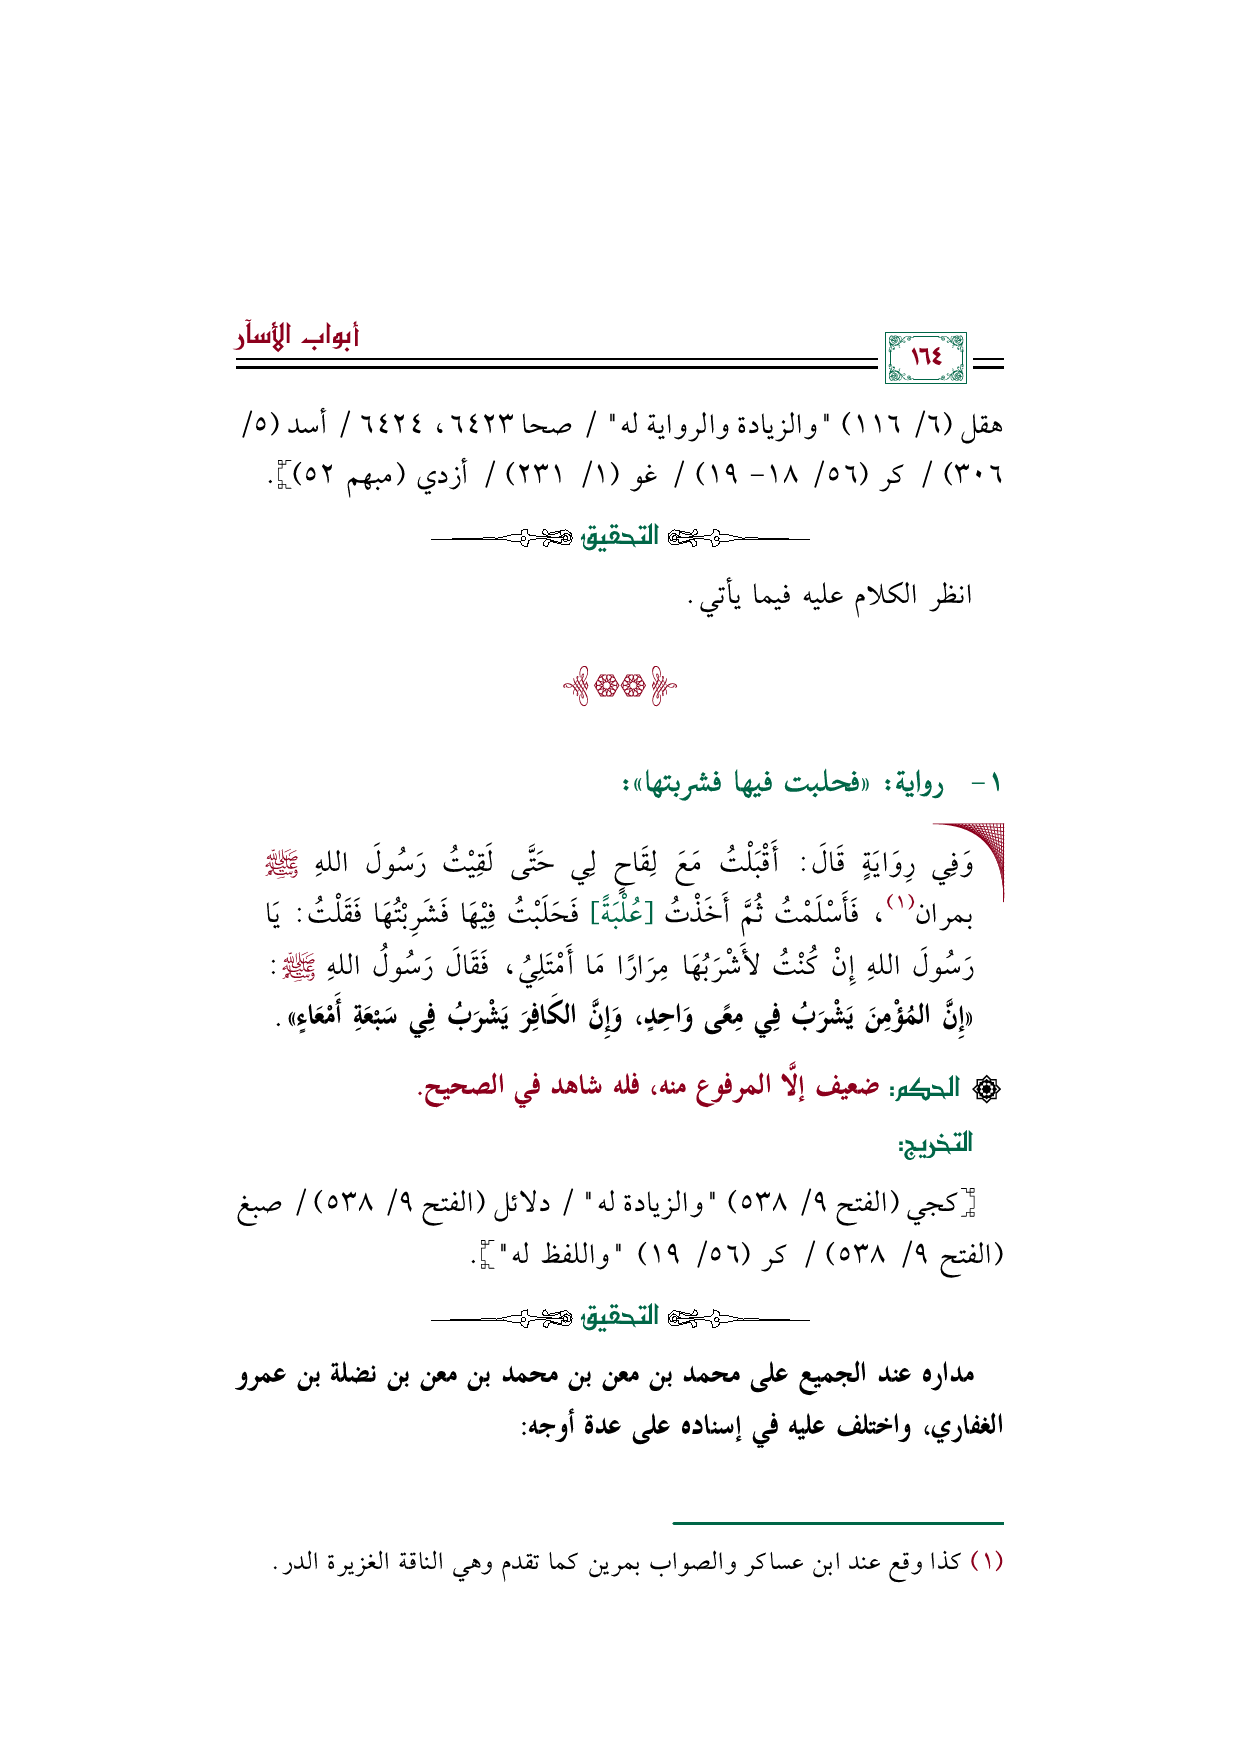 أبواب الأسآر
١٦٤
هقل (٦/ ١١٦) "والزيادة والرواية له" / صحا ٦٤٢٣، ٦٤٢٤ / أسد (٥/
٣٠٦) / كر (٥٦/ ١٨- ١٩) / غو (١/ ٢٣١) / أزدي (مبهم ٥٢)].
التحقيق
انظر الكلام عليه فيما يأتي.
١- رواية: «فحلبت فيها فشربتها»:
وَفِي رِوَايَةٍ قَالَ: أَقْبَلْتُ مَعَ لِقَاحٍ لِي حَتَّى لَقِيْتُ رَسُولَ اللهِ ﷺ
بمران(١)، فَأَسْلَمْتُ ثُمَّ أَخَذْتُ [عُلْبَةً] فَحَلَبْتُ فِيْهَا فَشَرِبْتُهَا فَقَلْتُ: يَا
رَسُولَ اللهِ إِنْ كُنْتُ لأَشْرَبُهَا مِرَارًا مَا أَمْتَلِيُ، فَقَالَ رَسُولُ اللهِ ﷺ:
«إِنَّ المُؤْمِنَ يَشْرَبُ فِي مِعًى وَاحِدٍ، وَإِنَّ الكَافِرَ يَشْرَبُ فِي سَبْعَةِ أَمْعَاءٍ».
الحكم: ضعيف إلَّا المرفوع منه، فله شاهد في الصحيح.
التخريج:
[كجي (الفتح ٩/ ٥٣٨) "والزيادة له" / دلائل (الفتح ٩/ ٥٣٨) / صبغ
(الفتح ٩/ ٥٣٨) / كر (٥٦/ ١٩) "واللفظ له"].
التحقيق
مداره عند الجميع على محمد بن معن بن محمد بن معن بن نضلة بن عمرو
الغفاري، واختلف عليه في إسناده على عدة أوجه:
(١) كذا وقع عند ابن عساكر والصواب بمرين كما تقدم وهي الناقة الغزيرة الدر.